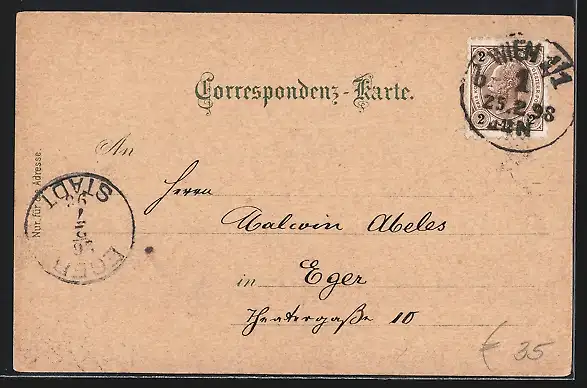 Correspondenz-Karte.
WIEN 1/1
1
25.2.98
4-5N
2 2
2 2
An
Herrn
Malwin Abeles
in Eger
Theatergaße 10
Nur für die Adresse.
EGER
STADT
98
€ 35